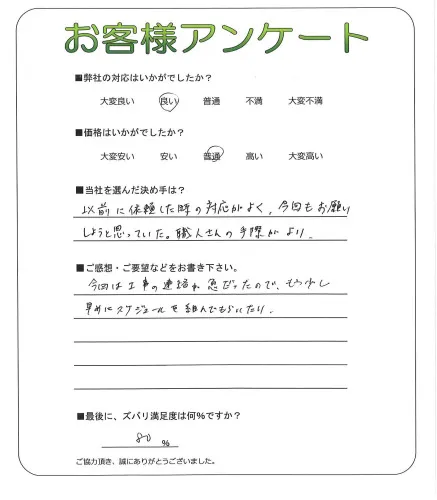 お客様アンケート
■弊社の対応はいかがでしたか？
大変良い 良い 普通 不満 大変不満
■価格はいかがでしたか？
大変安い 安い 普通 高い 大変高い
■当社を選んだ決め手は？
以前に依頼した時の対応がよく、今回もお願い
しようと思っていた。職人さんの手際がよい。
■ご感想・ご要望などをお書き下さい。
今回は工事の連絡が急だったので、もう少し
早めにスケジュールを組んでもらいたい。
■最後に、ズバリ満足度は何％ですか？
80 %
ご協力頂き、誠にありがとうございました。